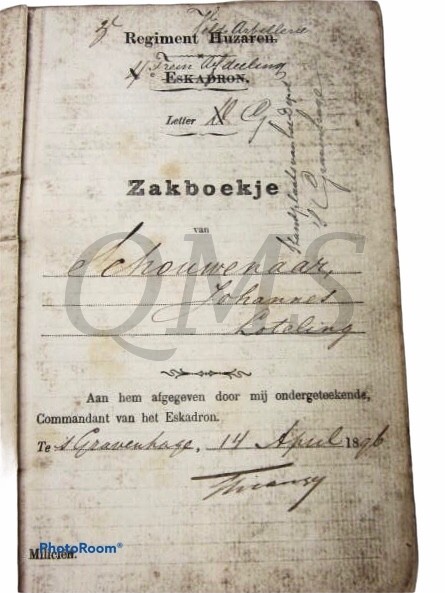 3e Veld Artillerie
Regiment Huzaren.
Trein Afdeeling
ESKADRON.
Letter G
Standplaats van het depot
's Gravenhage
Zakboekje
van
Schouwenaar,
Johannes
Loteling
QMS
Aan hem afgegeven door mij ondergeteekende,
Commandant van het Eskadron.
Te 's Gravenhage, 14 April 1896
Milicien.
PhotoRoom®